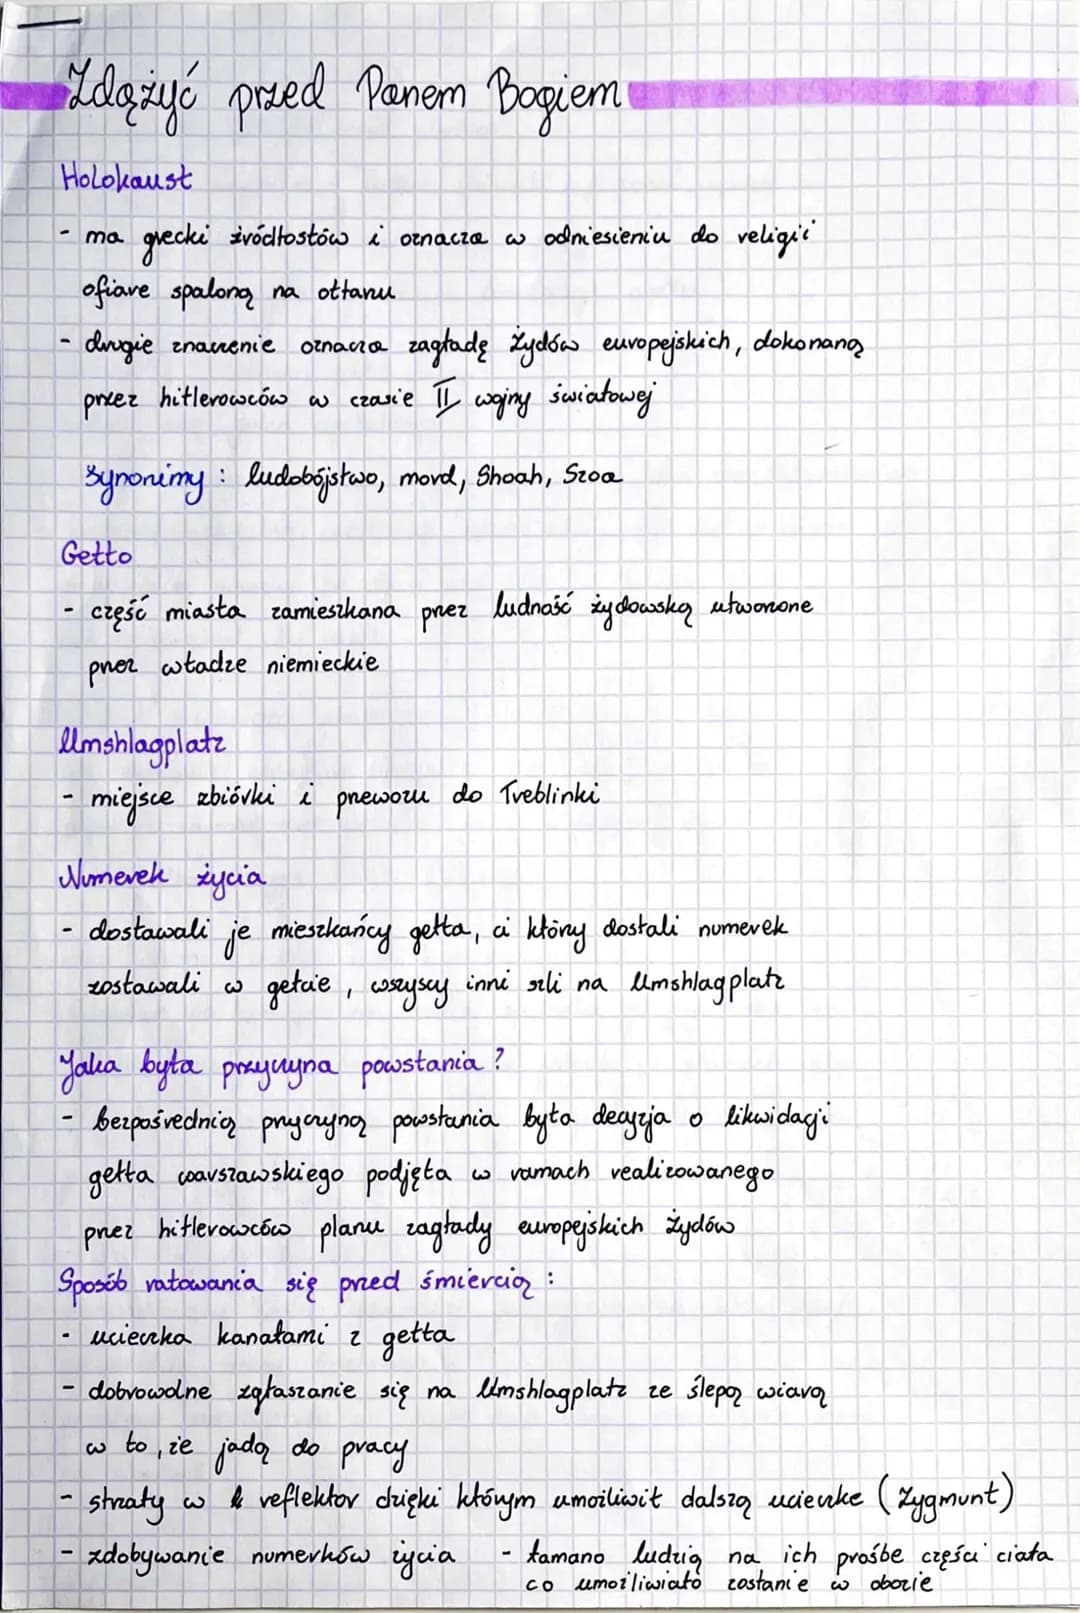 Zdążyć przed Panem Bogiem
Holokaust
- ma grecki źródłosłów i oznacza w odniesieniu do religii
ofiare spaloną na ołtarzu
- drugie znaczenie oznacza zagładę Żydów europejskich, dokonaną
przez hitlerowców w czasie II wojny światowej
Synonimy: ludobójstwo, mord, Shoah, Szoa
Getto
- część miasta zamieszkana przez ludność żydowską utworzone
przez władze niemieckie
Umshlagplatz
- miejsce zbiórki i przewozu do Treblinki
Numerek życia
- dostawali je mieszkańcy getta, ci którzy dostali numerek
zostawali w getcie, wszyscy inni szli na Umshlagplatz
Jaka była przyczyna powstania?
- bezpośrednią przyczyną powstania była decyzja o likwidacji
getta warszawskiego podjęta w ramach realizowanego
przez hitlerowców planu zagłady europejskich Żydów
Sposób ratowania się przed śmiercią:
- ucieczka kanałami z getta
- dobrowolne zgłaszanie się na Umshlagplatz ze ślepą wiarą
w to, że jadą do pracy
- strzały w reflektor dzięki którym umożliwił dalszą ucieczke (Zygmunt)
- zdobywanie numerków życia - łamano ludzią na ich prośbe części ciała
co umożliwiało zostanie w obozie